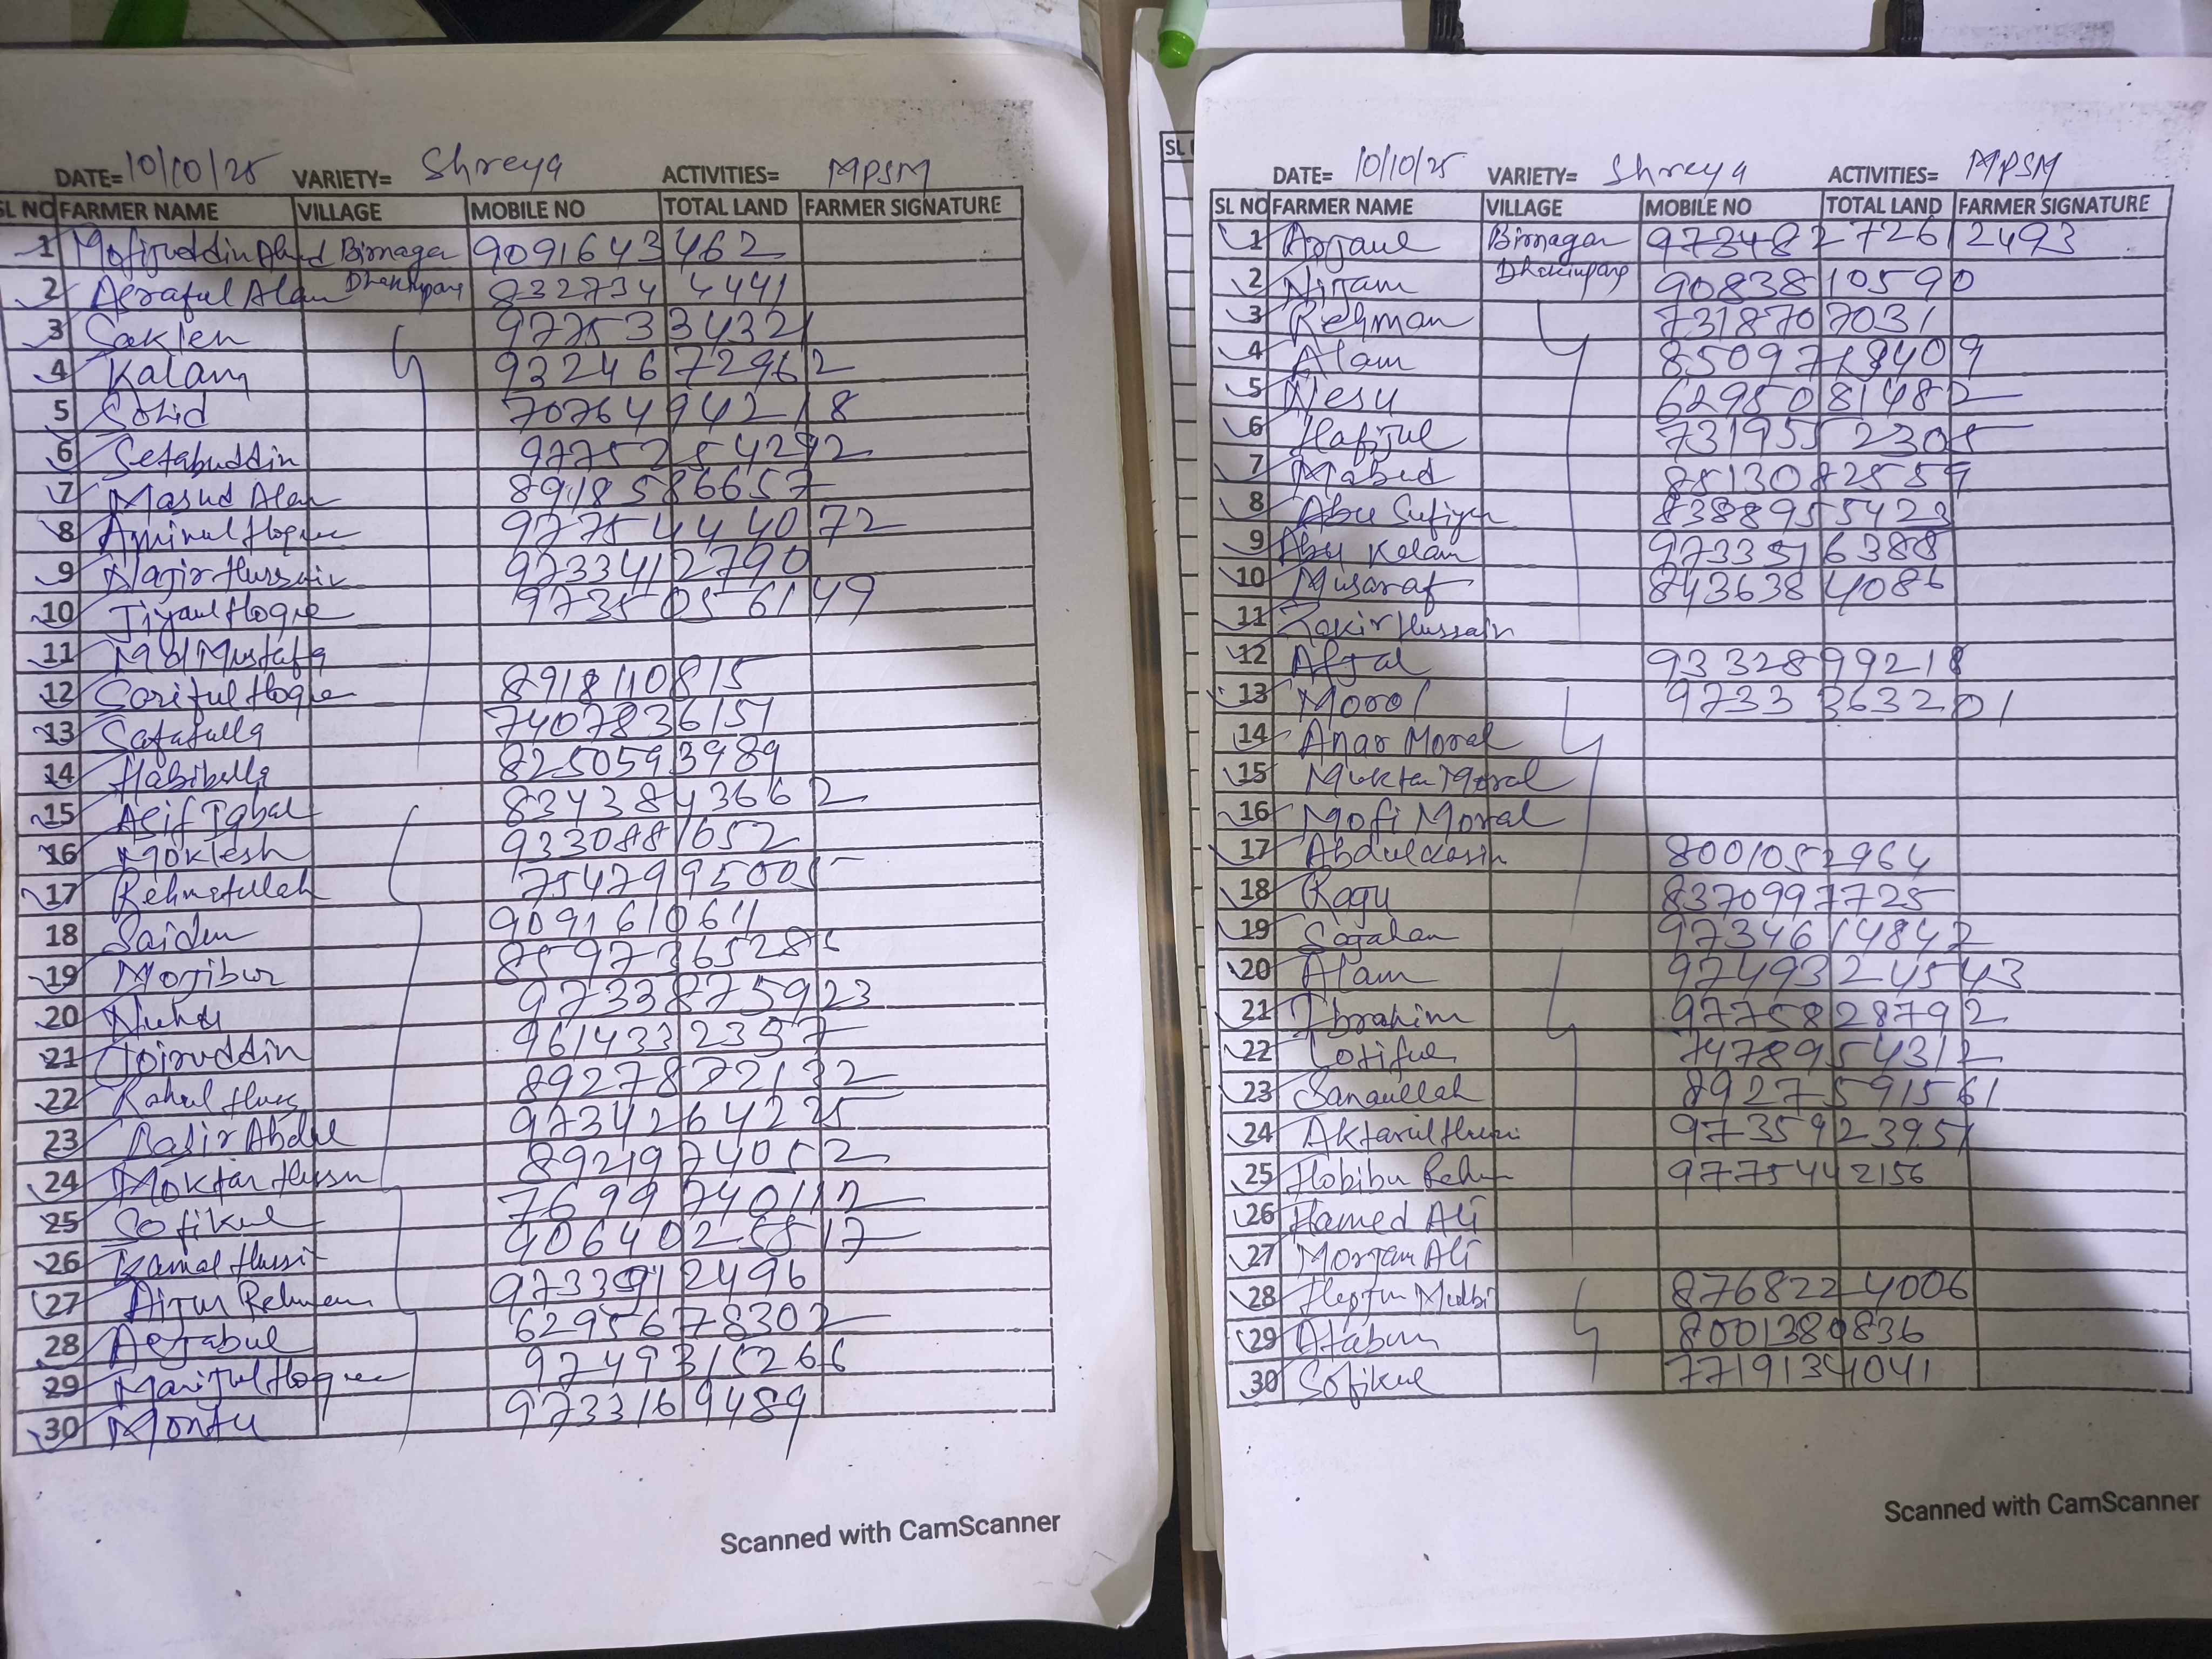 DATE= 10/10/25 VARIETY= Shreya ACTIVITIES= MPSM
SL NO FARMER NAME VILLAGE MOBILE NO TOTAL LAND FARMER SIGNATURE
1 Mofijuddin Birnagar 9091643462
2 Asraful Alam 832734 4441
3 Saklen 9775334321
4 Kalam 9324672962
5 Sohid 7076494218
6 Setabuddin 9775254292
7 Masud Alam 8918586657
8 Aminul Hoque 9775444072
9 Najir Hussain 9733412790
10 Jiyaul Hoque 9735056149
11 Md Mustafa
12 Soriful Hoque 8918110815
13 Safatulla 7407836151
14 Habibulla 8250593989
15 Asif Iqbal 8343843662
16 Moklesh 9330881652
17 Rehmatullah 7547995005
18 Saidur 9091610611
19 Mojibur
20 Nuhu 9733875923
21 Joiruddin 9614332357
22 8927872132
23 Basir Abdul 9734264225
24 Moktar 8921974052
25 Sofikul 7699740112
26 Kamal 9064025817
27 Aijur Rehman 2496
28 6295678302
29 Manijul Hoque 9749315266
30 Montu 9733169489
Scanned with CamScanner
SL
DATE= 10/10/25 VARIETY= Shreya ACTIVITIES= MPSM
SL NO FARMER NAME VILLAGE MOBILE NO TOTAL LAND FARMER SIGNATURE
1 Birnagar 9734827261 2493
2 Nijam 9083810590
3 Rehman 7318707031
4 Alam 8509718409
5 Nesu 6295081482
6 Hafijul 7319552305
7 Mabud 8513082559
8 Abu Sufiyan 8388955423
9 Abu Kalam 9733516388
10 Musaraf 8436384086
11 Zakir Hussain
12 Afjal 9332899218
13 Morol 9733363201
14 Anar Moral
15 Muktar Moral
16 Mofi Moral
17 8001052964
18 Raju 8370997725
19 Sajahan 9734614842
20 Alam 9749324543
21 Ibrahim 9775828792
22 Lotiful 7478954312
23 Sanaullah 8927591561
24 9735923951
25 9775442156
26 Hamed Ali
27 Morjam Ali
28 8768224006
29 8001380836
30 Sofikul 7719134041
Scanned with CamScanner